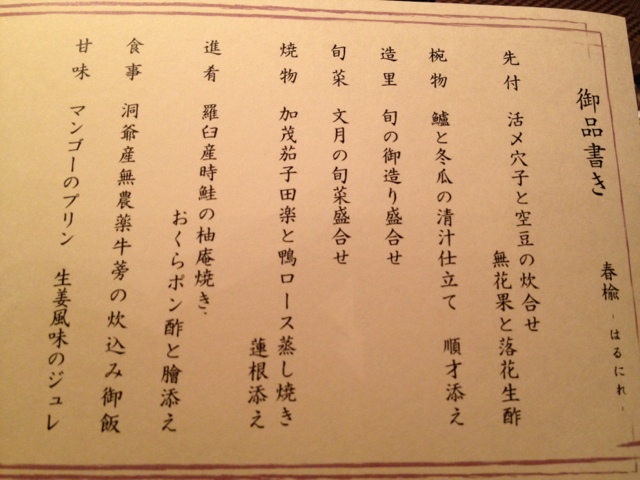 御品書き
春楡 - はるにれ -
先付 活〆穴子と空豆の炊合せ
無花果と落花生酢
椀物 鱸と冬瓜の清汁仕立て 順才添え
造里 旬の御造り盛合せ
旬菜 文月の旬菜盛合せ
焼物 加茂茄子田楽と鴨ロース蒸し焼き
蓮根添え
進肴 羅臼産時鮭の柚庵焼き、
おくらポン酢と膾添え
食事 洞爺産無農薬牛蒡の炊込み御飯
甘味 マンゴーのプリン 生姜風味のジュレ